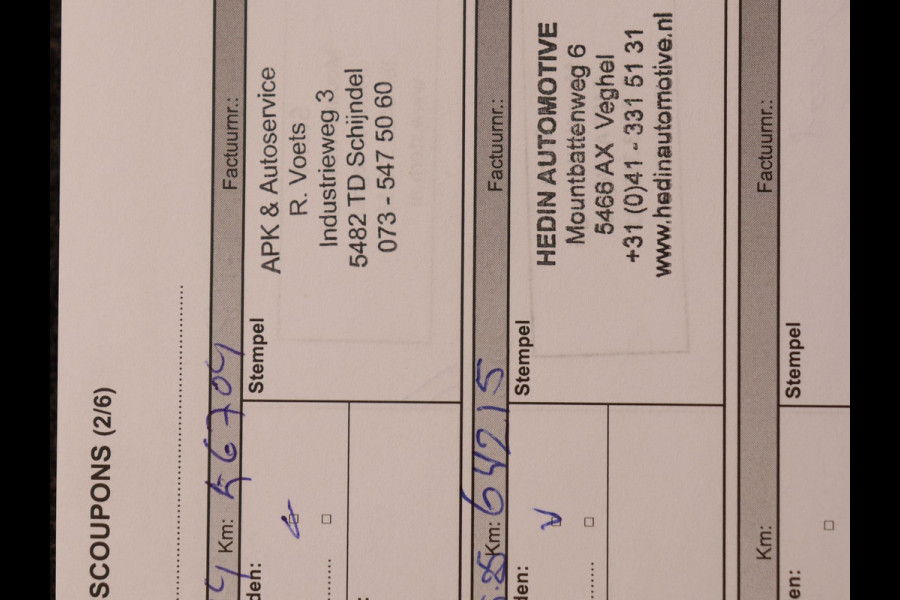 SCOUPONS (2/6)
Km: 56704 Factuurnr.:
den:
Stempel
APK & Autoservice
R. Voets
Industrieweg 3
5482 TD Schijndel
073 - 547 50 60
Km: 64215 Factuurnr.:
den:
Stempel
HEDIN AUTOMOTIVE
Mountbattenweg 6
5466 AX Veghel
+31 (0)41 - 331 51 31
www.hedinautomotive.nl
Km: Factuurnr.:
en:
Stempel